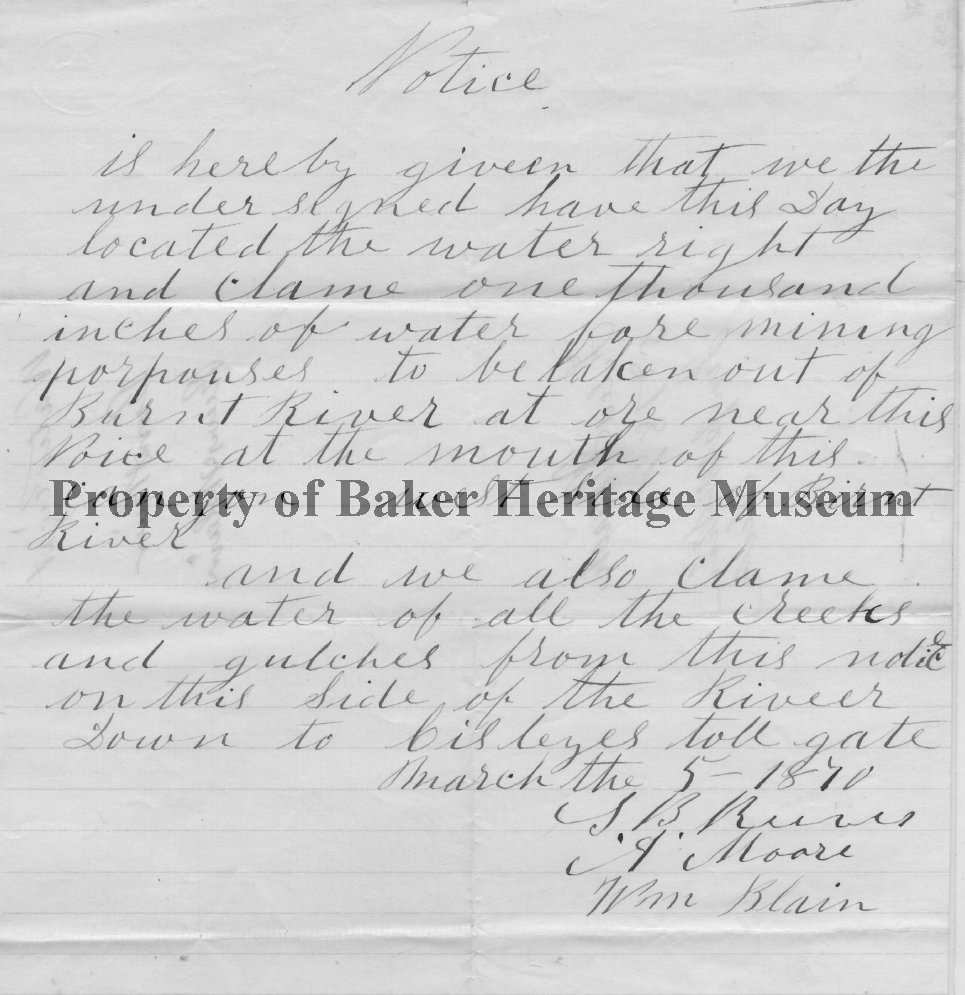 Notice
is hereby giveen that we the
undersigned have this Day
located the water right
and clame one thousand
inches of water fore mining
porpouses to be taken out of
Burnt River at ore near this
Noice at the mouth of this
canyon west Side of Birnt
Property of Baker Heritage Museum
River
and we also clame
the water of all the creeks
and gulches from this notice
on this Side of the Riveer
Down to toll gate
March the 5 - 1870
S B Reeves
A Moore
Wm Blain